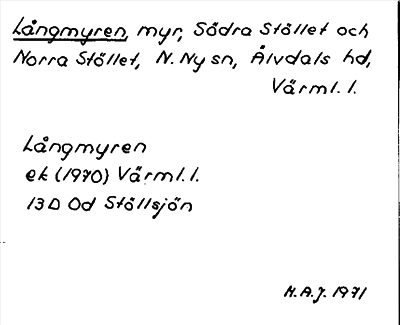 Långmyren, myr, Södra Stöllet och
Norra Stöllet, N. Ny sn, Älvdals hd,
Värml. l.
Långmyren
ek (1970) Värml. l.
13D 0d Stöllsjön
H.A.J. 1971